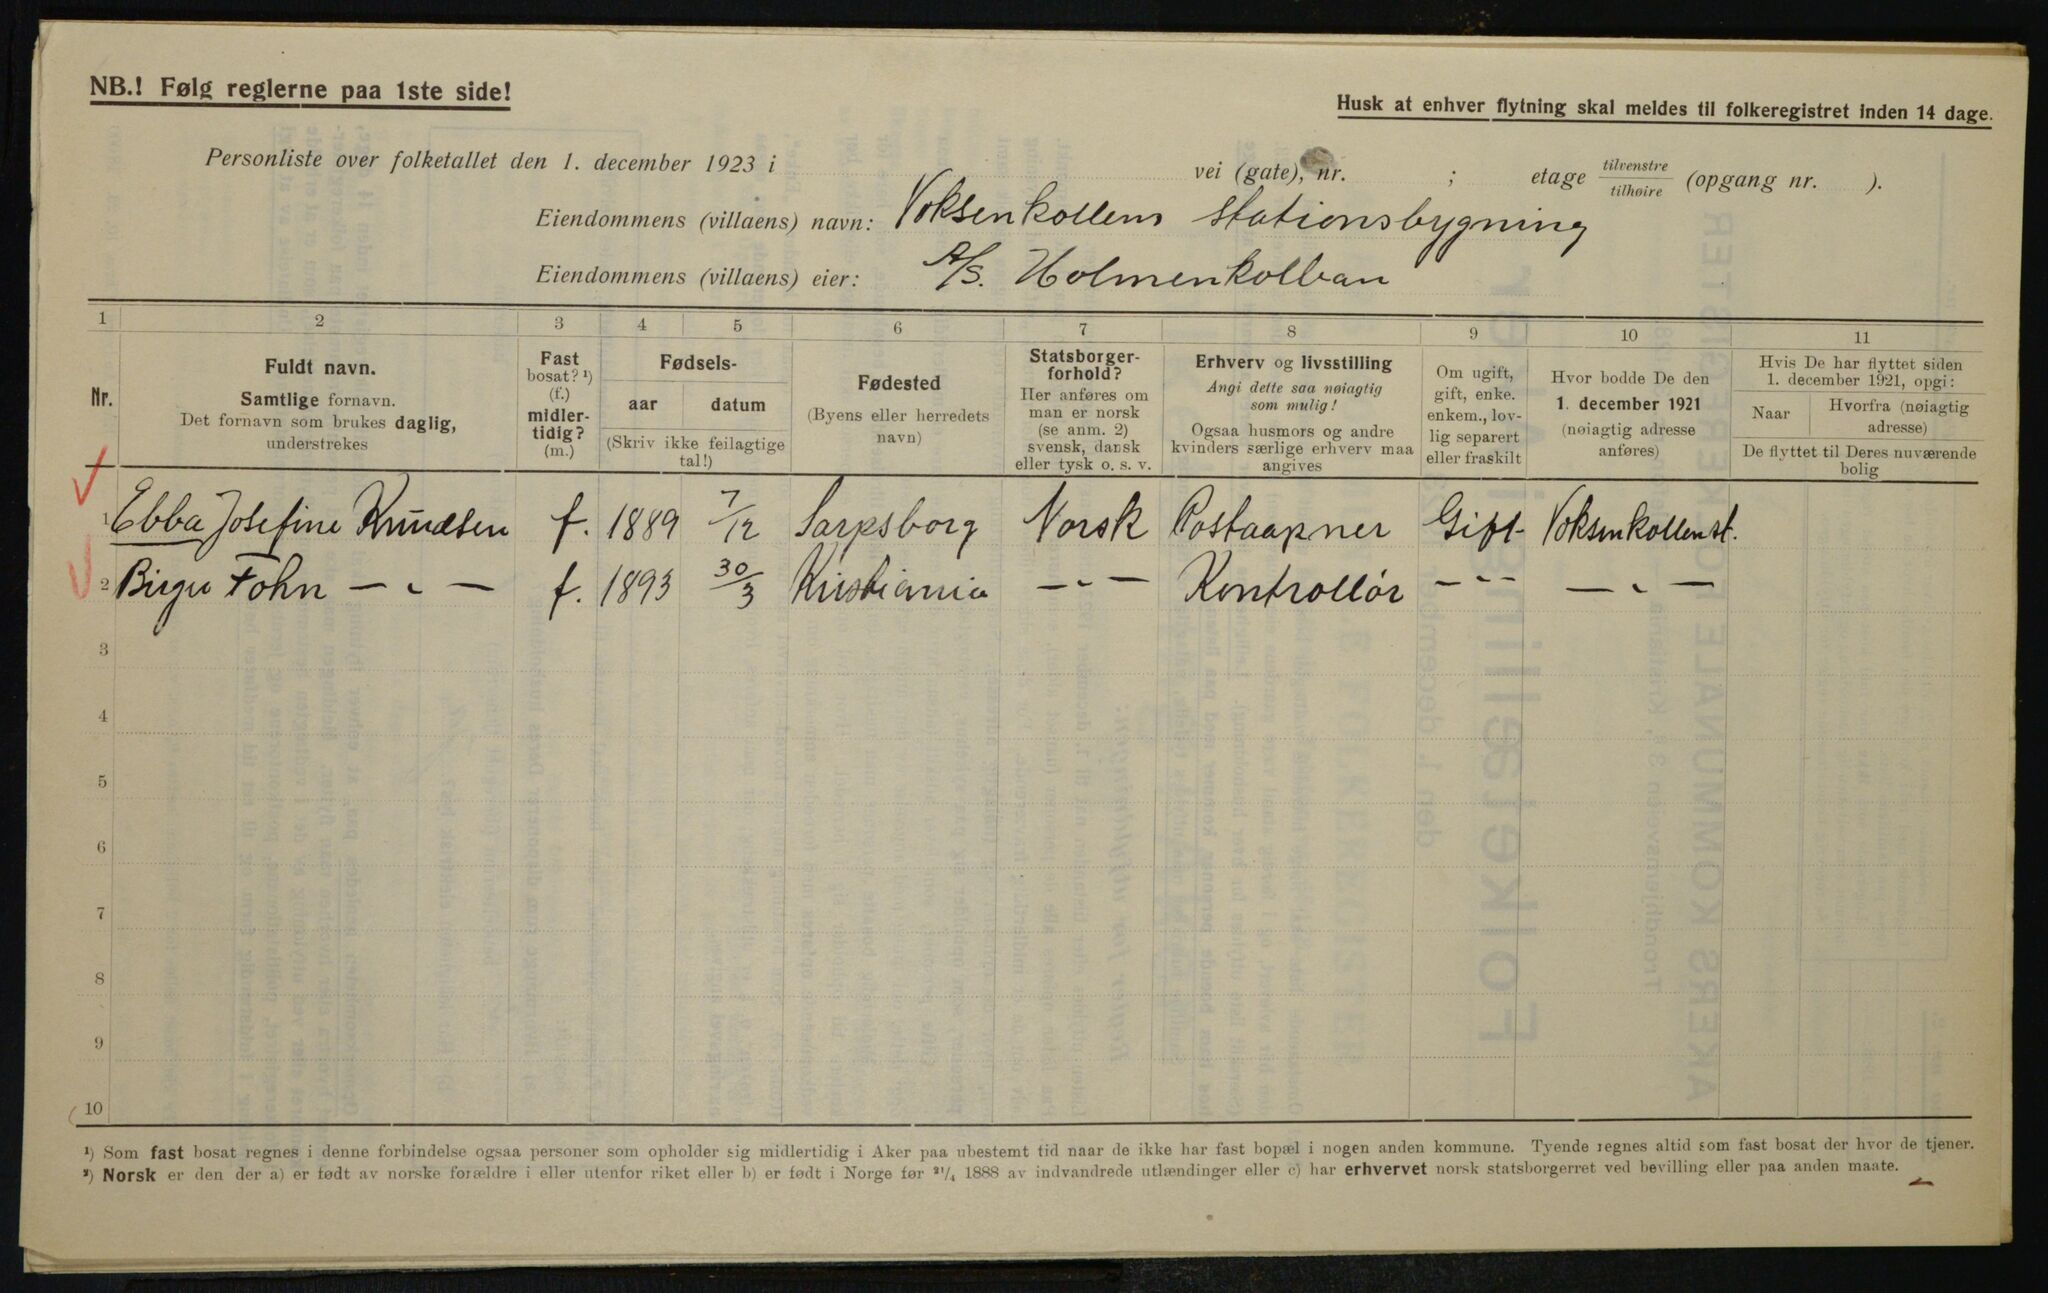 NB.! Følg reglerne paa 1ste side!
Husk at enhver flytning skal meldes til folkeregistret inden 14 dage.
Personliste over folketallet den 1. december 1923 i vei (gate), nr. ; etage tilvenstre/tilhøire (opgang nr. ).
Eiendommens (villaens) navn: Voksenkollens stationsbygning
Eiendommens (villaens) eier: A/S. Holmenkolban
1 2 3 4 5 6 7 8 9 10 11
Nr.
Fuldt navn.
Samtlige fornavn.
Det fornavn som brukes daglig,
understrekes
Fast
bosat? ¹)
(f.)
midler-
tidig?
(m.)
Fødsels-
aar datum
(Skriv ikke feilagtige
tal!)
Fødested
(Byens eller herredets
navn)
Statsborger-
forhold?
Her anføres om
man er norsk
(se anm. 2)
svensk, dansk
eller tysk o. s. v.
Erhverv og livsstilling
Angi dette saa nøiagtig
som mulig!
Ogsaa husmors og andre
kvinders særlige erhverv maa
angives
Om ugift,
gift, enke.
enkem., lov-
lig separert
eller fraskilt
Hvor bodde De den
1. december 1921
(nøiagtig adresse
anføres)
Hvis De har flyttet siden
1. december 1921, opgi:
Naar Hvorfra (nøiagtig
adresse)
De flyttet til Deres nuværende
bolig
1 Ebba Josefine Knudsen f. 1889 7/12 Sarpsborg Norsk Postaapner Gift Voksenkollenst.
2 Birger John — „ — f. 1893 30/3 Kristiania — „ — Kontrollør — „ — — „ —
3
4
5
6
7
8
9
10
¹) Som fast bosat regnes i denne forbindelse ogsaa personer som opholder sig midlertidig i Aker paa ubestemt tid naar de ikke har fast bopæl i nogen anden kommune. Tyende regnes altid som fast bosat der hvor de tjener.
²) Norsk er den der a) er født av norske forældre i eller utenfor riket eller b) er født i Norge før ²¹/₄ 1888 av indvandrede utlændinger eller c) har erhvervet norsk statsborgerret ved bevilling eller paa anden maate.